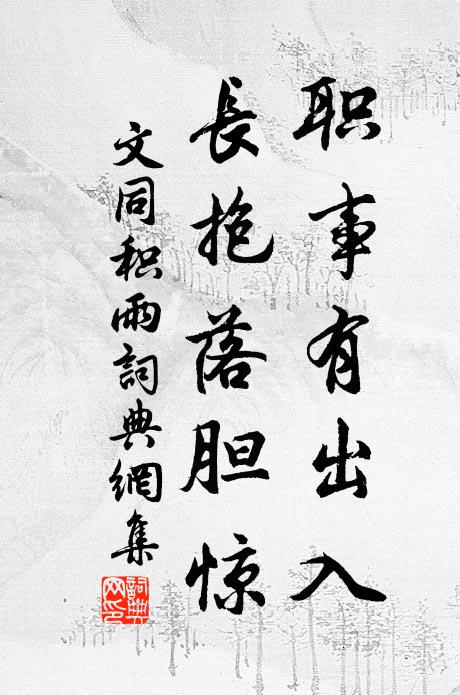 职事有出入
長抱落胆惊
文同积雨詞典網集